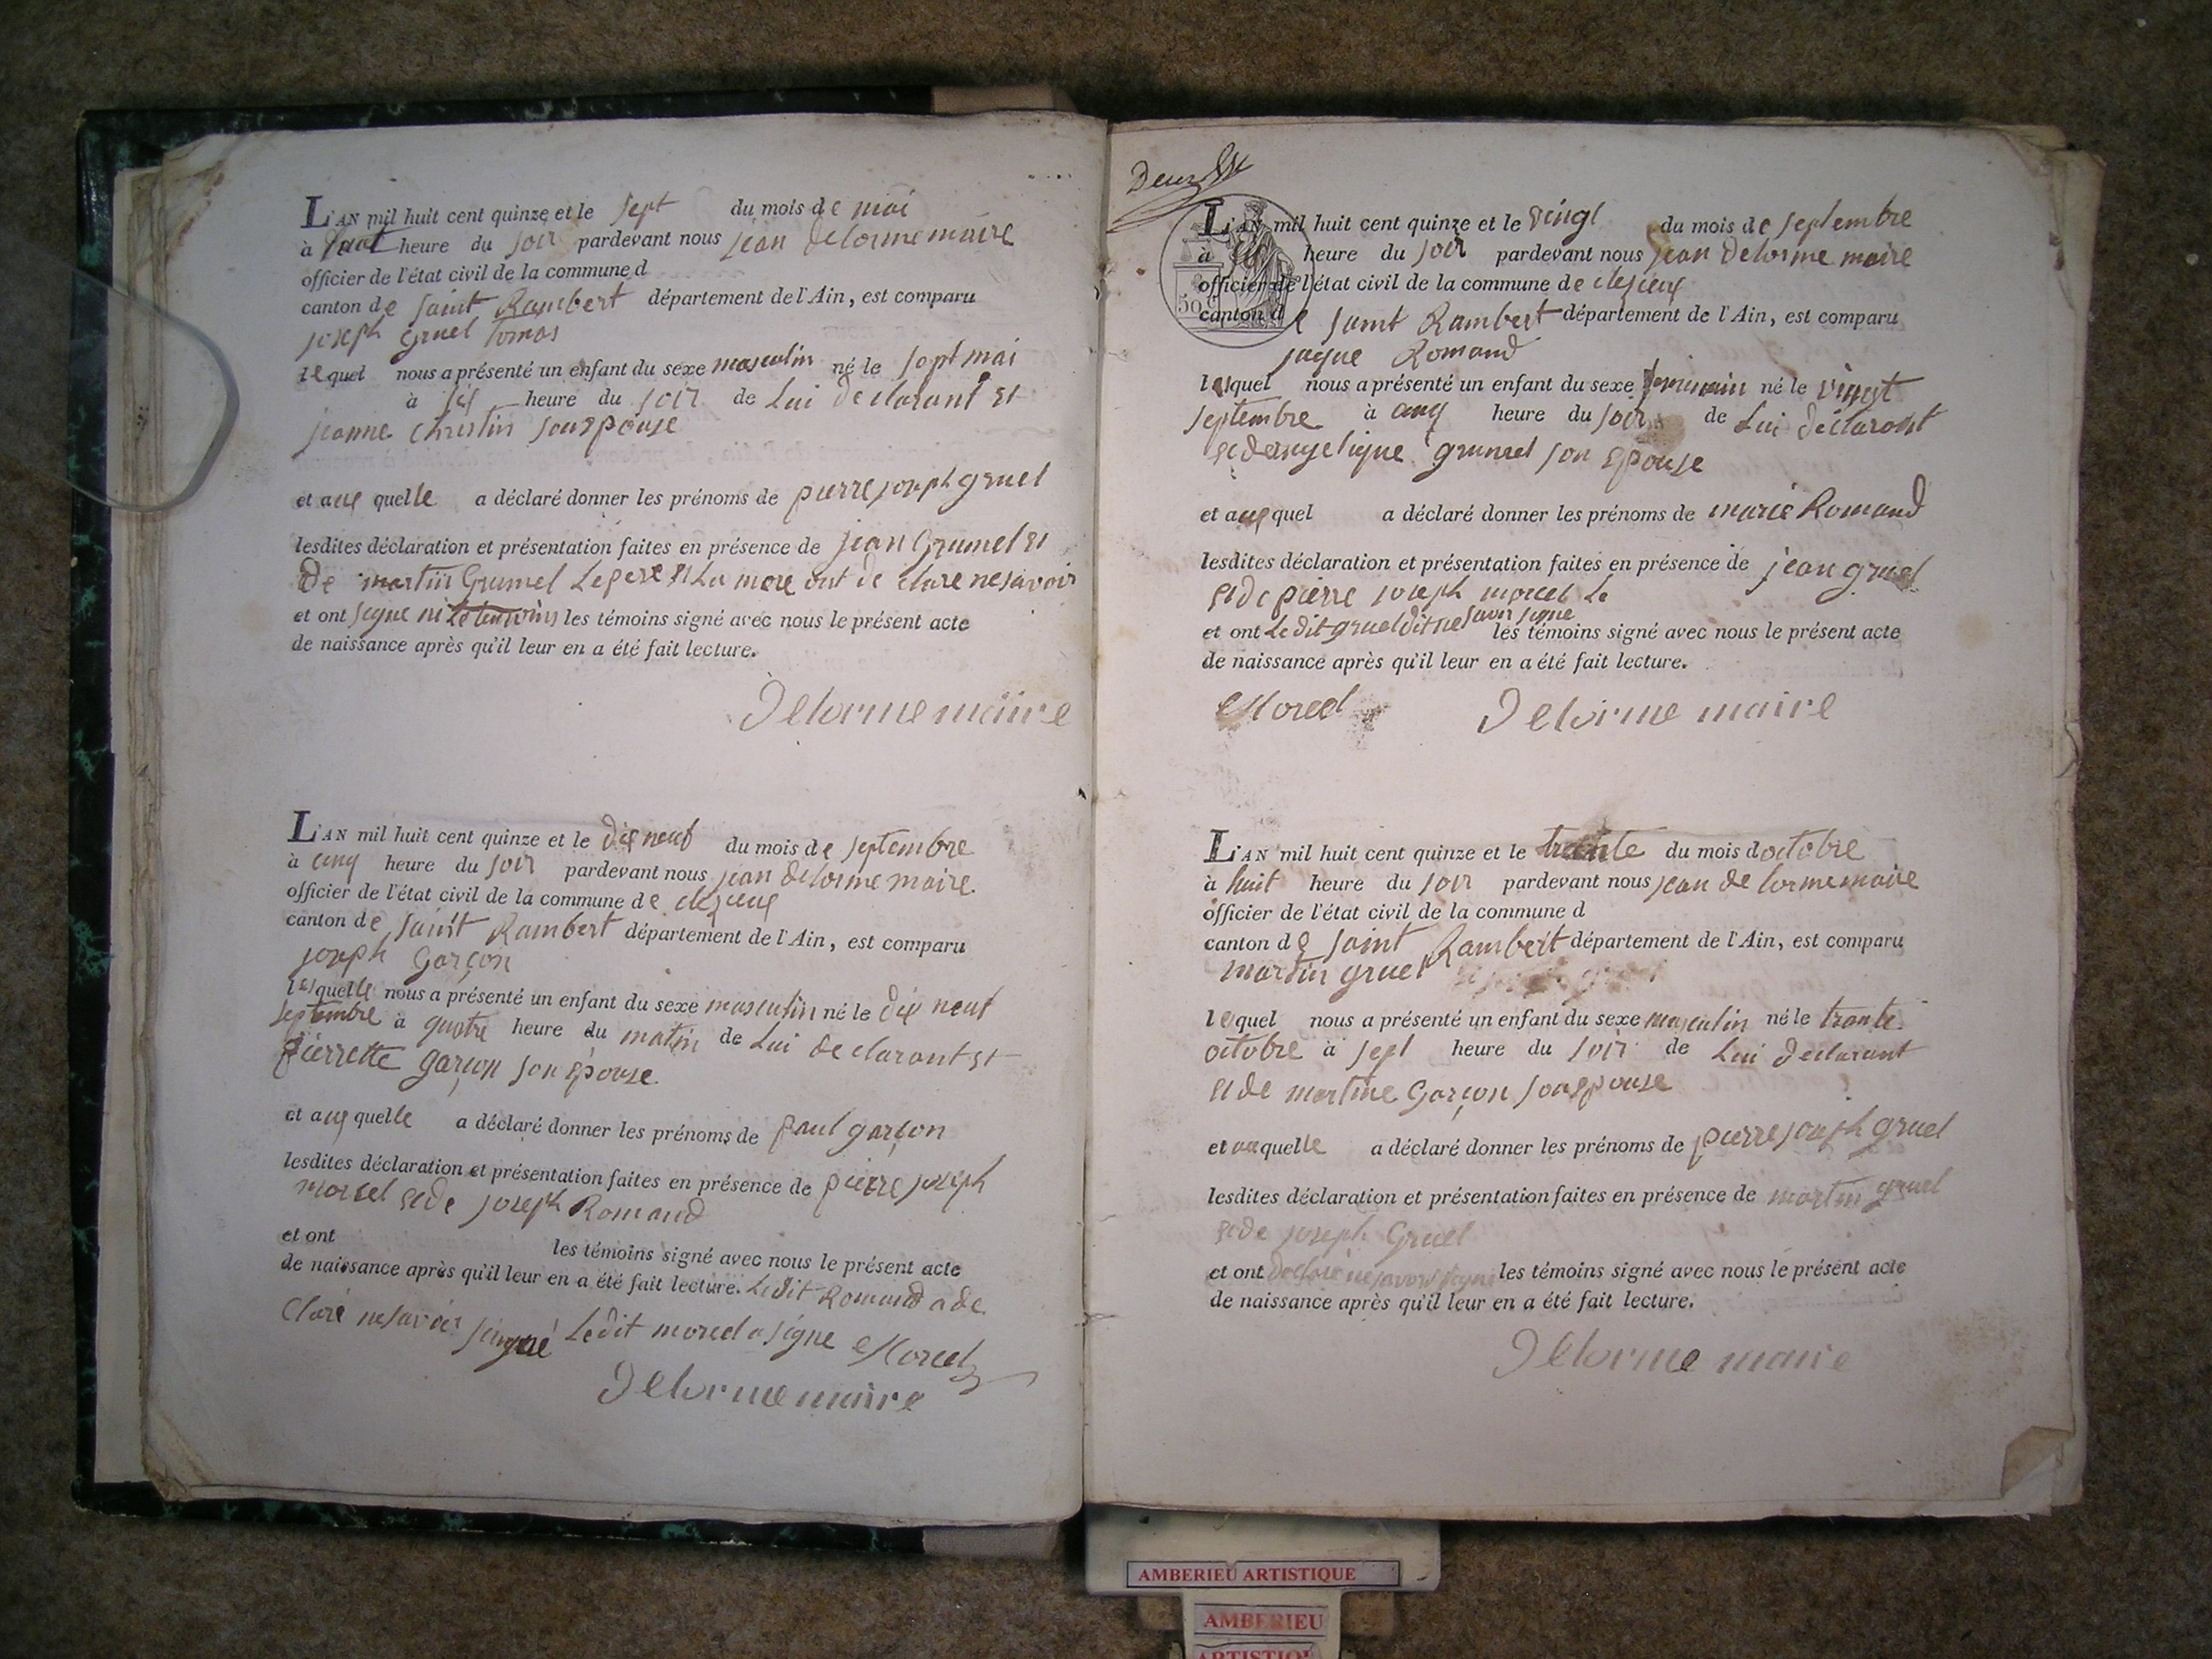 L'AN mil huit cent quinze et le sept du mois de mai
à heure du soir pardevant nous jean delorme maire
officier de l'état civil de la commune d
canton de saint Rambert département de l'Ain, est comparu
joseph gruel tomas
lequel nous a présenté un enfant du sexe masculin né le sept mai
à six heure du soir de Lui declarant et
jeanne christin son epouse
et aux quelle a déclaré donner les prénoms de pierre joseph gruel
lesdites déclaration et présentation faites en présence de jean Grumel et
de martin Grumel Le pere et La mere ont de clare ne savoir
et ont signe ni Le temoins les témoins signé avec nous le présent acte
de naissance après qu'il leur en a été fait lecture.
Delorme maire
L'AN mil huit cent quinze et le dix neuf du mois de septembre
à cinq heure du soir pardevant nous jean delorme maire
officier de l'état civil de la commune de clezieux
canton de saint Rambert département de l'Ain, est comparu
joseph Garçon
lesquelle nous a présenté un enfant du sexe masculin né le dix neuf
septembre à quatre heure du matin de Lui declarant et
pierrette garçon son épouse.
et aux quelle a déclaré donner les prénoms de paul garçon
lesdites déclaration et présentation faites en présence de pierre joseph
morcel et de joseph Romand
et ont les témoins signé avec nous le présent acte
de naissance après qu'il leur en a été fait lecture. Ledit Romand a de
claré ne savoir signé Ledit morcel a signe Morcel
Delorme maire
Deux
50 c
L'AN mil huit cent quinze et le vingt du mois de septembre
à six heure du soir pardevant nous jean delorme maire
officier de l'état civil de la commune de clezieux
canton de saint Rambert département de l'Ain, est comparu
jaque Romand
lesquel nous a présenté un enfant du sexe feminin né le vingt
septembre à cinq heure du soir de Lui déclarant
et de angelique grumel son épouse
et aux quel a déclaré donner les prénoms de marie Romand
lesdites déclaration et présentation faites en présence de jean gruel
et de pierre joseph morcel Le
et ont Le dit gruel dit ne savoir signe les témoins signé avec nous le présent acte
de naissance après qu'il leur en a été fait lecture.
Morcel Delorme maire
L'AN mil huit cent quinze et le trente du mois doctobre
à huit heure du soir pardevant nous jean de lorme maire
officier de l'état civil de la commune d
canton de saint Rambert département de l'Ain, est comparu
martin gruel
lequel nous a présenté un enfant du sexe masculin né le trante
octobre à sept heure du soir de Lui declarant
et de martine Garçon son epouse
et au quelle a déclaré donner les prénoms de pierre joseph gruel
lesdites déclaration et présentation faites en présence de martin gruel
et de joseph Gruel
et ont declaré ne savoir signe les témoins signé avec nous le présent acte
de naissance après qu'il leur en a été fait lecture.
Delorme maire
AMBERIEU ARTISTIQUE
AMBERIEU
ARTISTIQUE